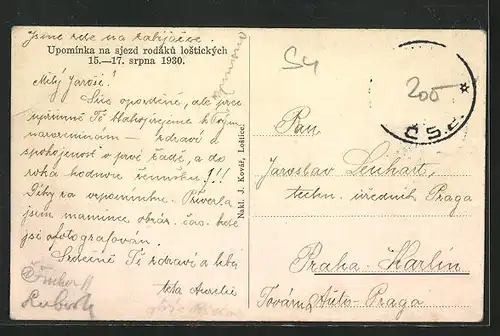 Jsme zde na zabijačce.
Upomínka na sjezd rodáků loštických
15.—17. srpna 1930.
Milý Jaroši!
Sice opozděně, ale přece
upřímně Ti blahopřejeme k Tvým
narozeninám — zdraví a
spokojenost v prvé řadě, a do
roka hodnou ženušku!!!
Díky za vzpomínku. Přivezla
jsem mamince obráz. čas. kde
jsi ofotografován.
Srdečně Tě zdraví a líbá
teta Aurelie
Nákl. J. Kovář, Loštice.
S4
205
Č.S.P.
Pan
Jaroslav Lenhart,
techn. úředník Praga
Praha - Karlín
Továrna Auto-Praga